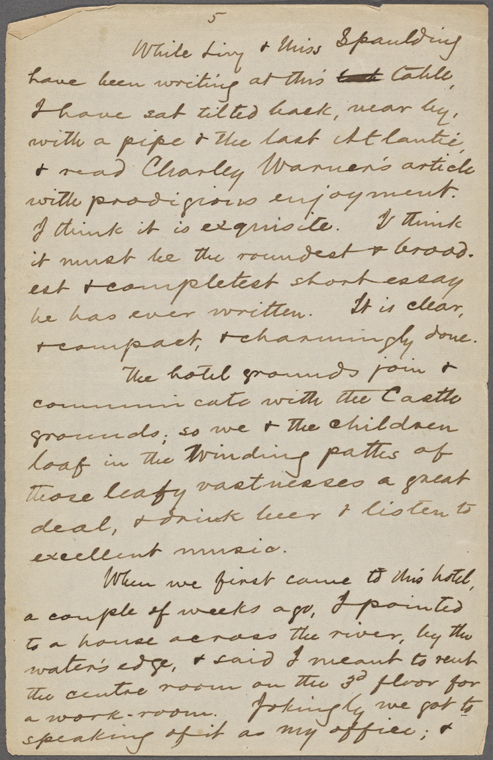 5
While Livy & Miss Spaulding
have been writing at this table,
I have sat tilted back, near by,
with a pipe & the last Atlantic,
& read Charley Warner's article
with prodigious enjoyment.
I think it is exquisite. I think
it must be the roundest & broad-
est & completest short essay
he has ever written. It is clear,
& compact, & charmingly done.
The hotel grounds join &
communicate with the Castle
grounds; so we & the children
loaf in the winding paths of
those leafy vastnesses a great
deal, & drink beer & listen to
excellent music.
When we first came to this hotel,
a couple of weeks ago, I pointed
to a house across the river, by the
water's edge, & said I meant to rent
the centre room on the 3d floor for
a work-room. Jokingly we got to
speaking of it as my office; &